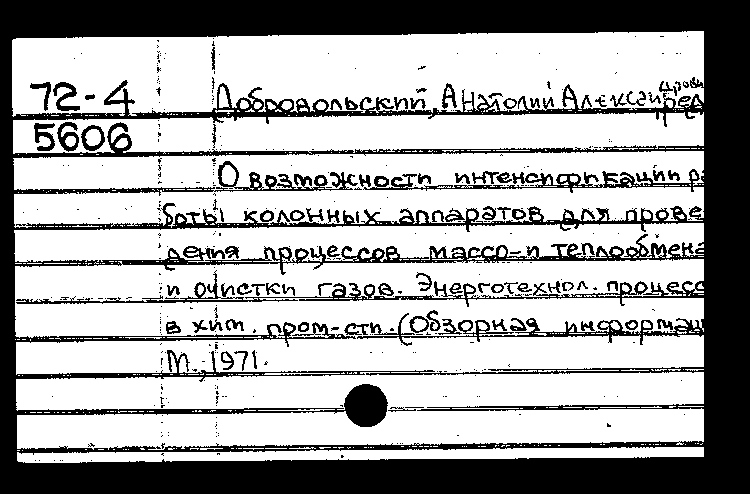 72-4
5606
Добровольский, Анатолий Александрович
О возможности интенсификации ра
боты колонных аппаратов для прове
дения процессов массо- и теплообмена
и очистки газов. Энерготехнол. процесс
в хим. пром-сти. (Обзорная информац
М., 1971.